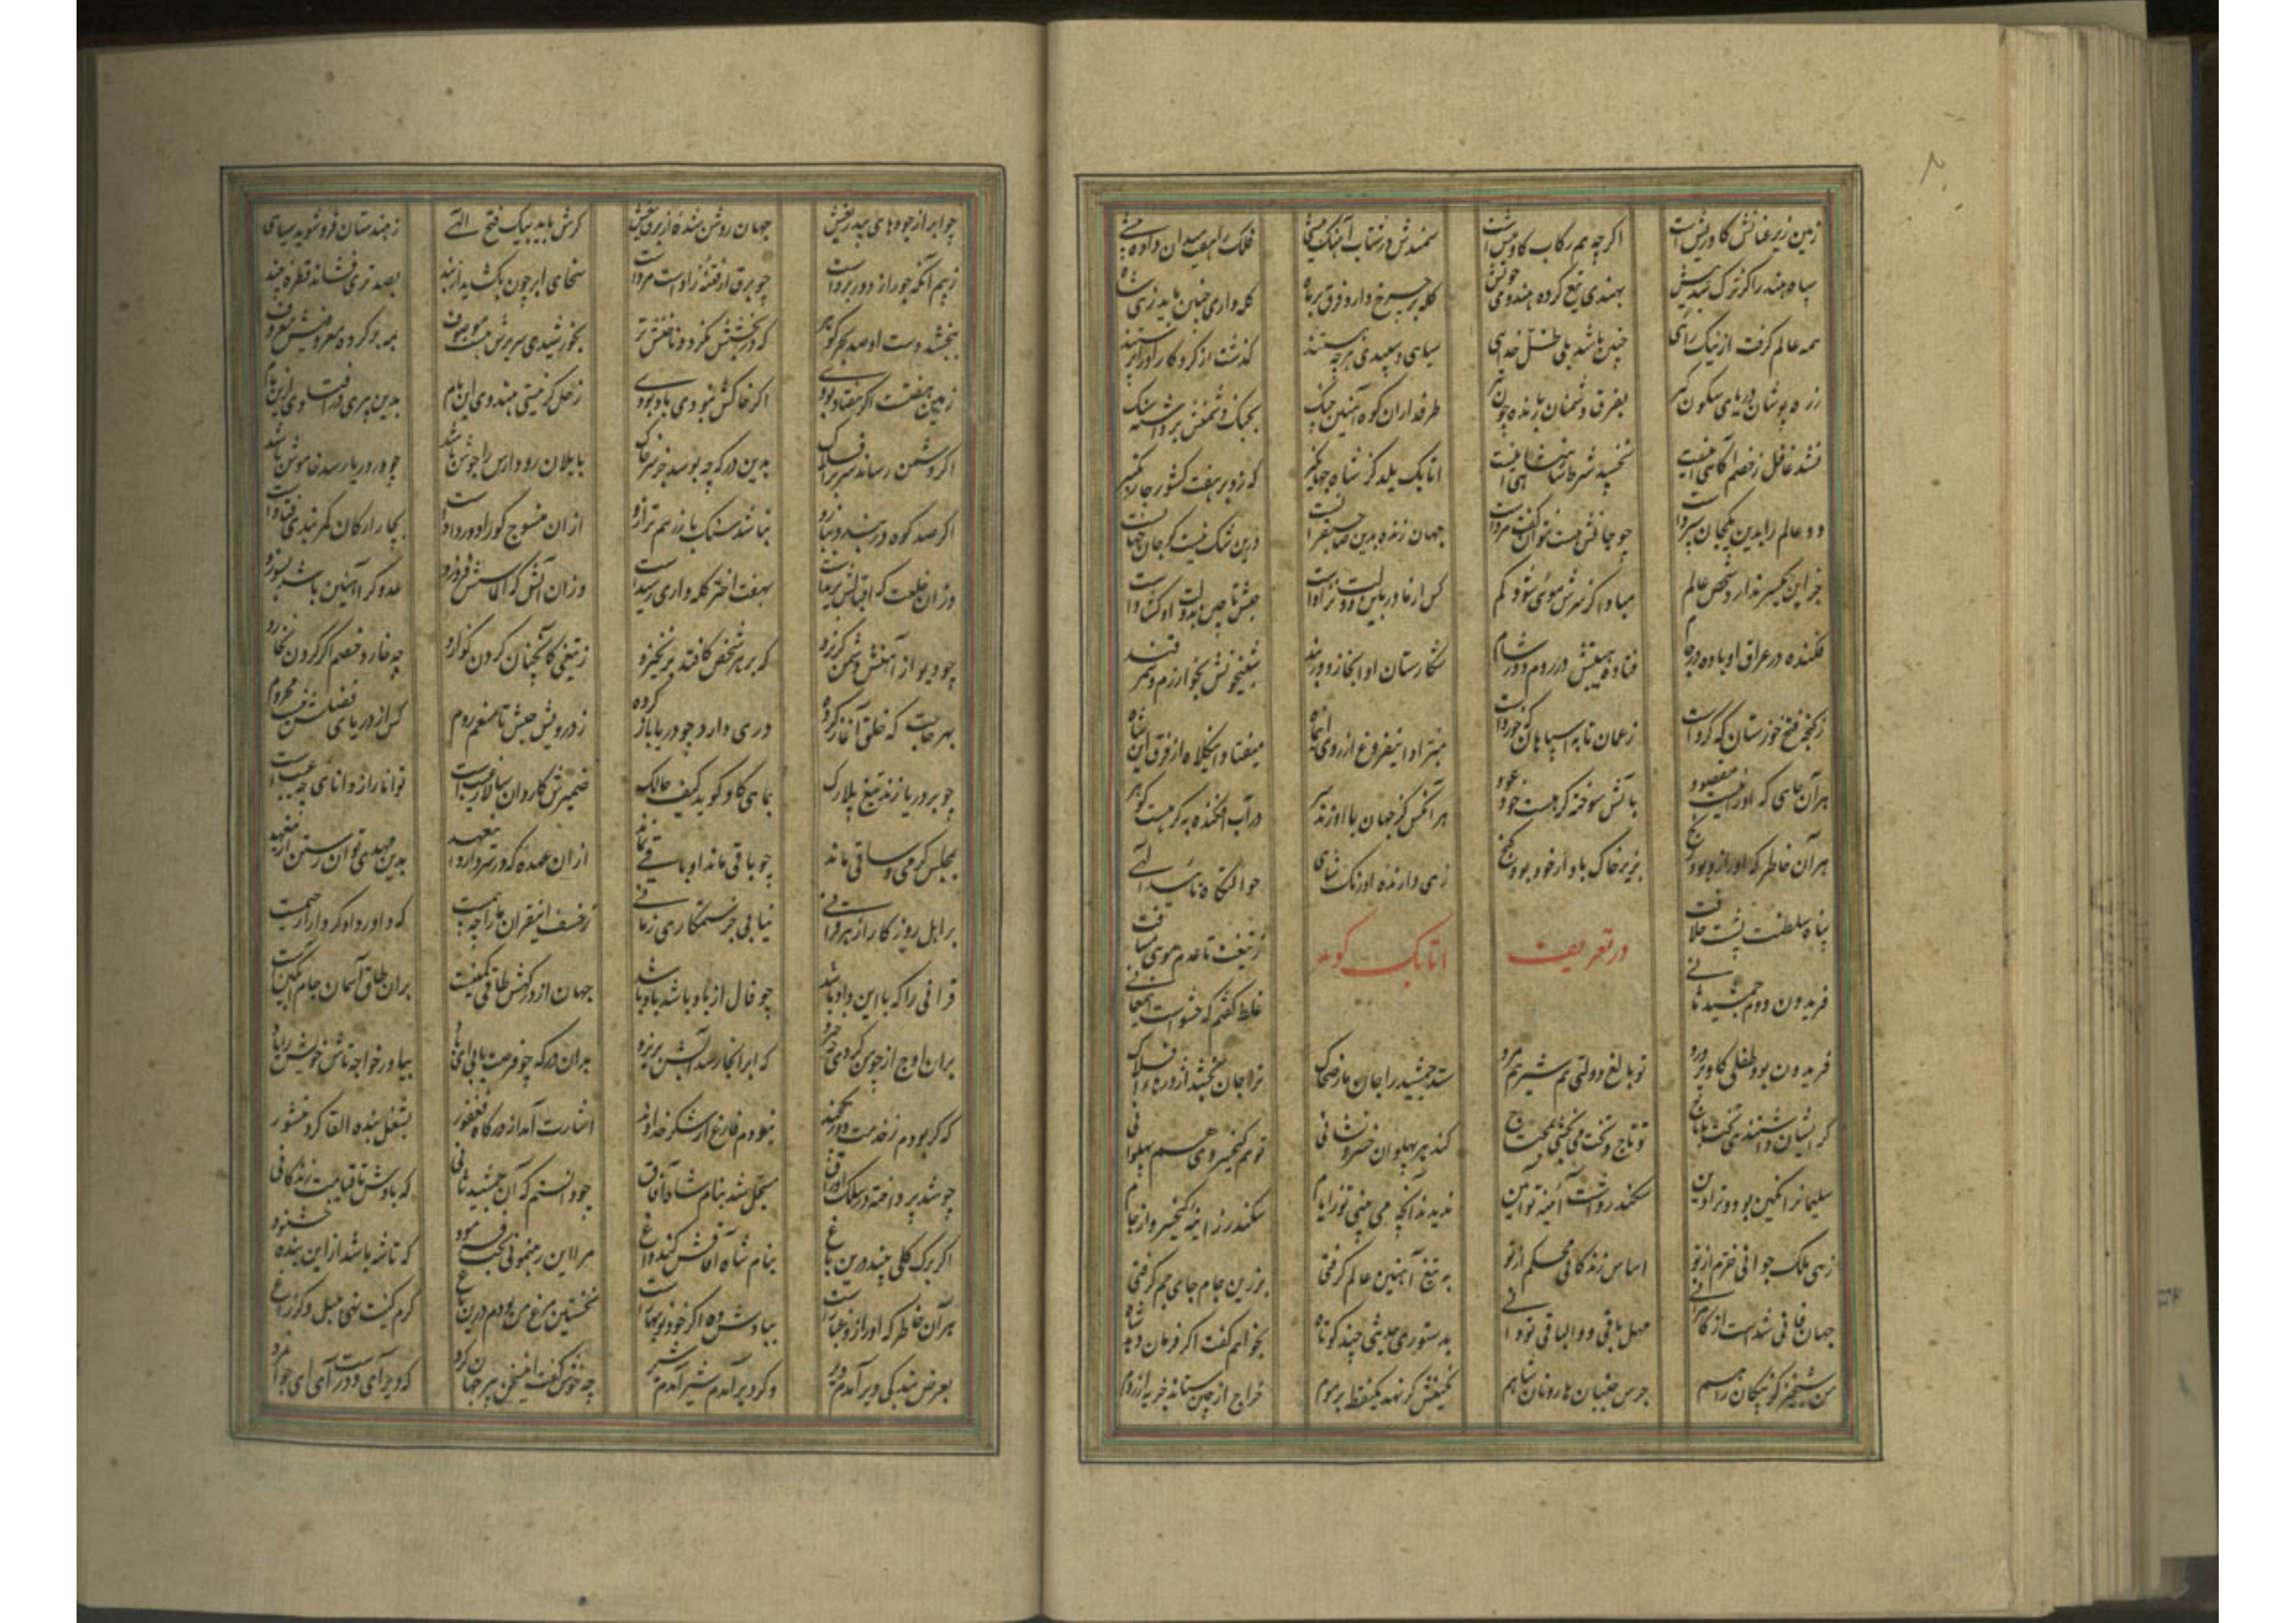 زمین زیر عنانش گاو ریش است اگرچه هم رکاب گاومیش است سمندش در شتاب آهنگ بیشی فلک را هفت میدان داده پیشی
سپاه هند را گر ترک شد پیش بهندی تیغ کرده هندوی خویش کله بر چرخ دارد فرق بر ماه کله داری چنین باید زهی شاه
همه عالم گرفت از نیک رای چنین باشد بلی ظل خدای سیاهی و سپیدی هرچه هستند گذشت از کردگار او را پرستند
زره پوشان دریای شکن گیر بفرق دشمنان بارنده چون تیر طرفداران کوه آهنین چنگ بجنگ دشمنش برداشته سنگ
نشد غافل ز خصم آگاهی اینست نخسپد شرط شاهنشاهی اینست اتابک یلدگز شاه جهانگیر که زد بر هفت کشور چار تکبیر
دو عالم را بدین یکجان سپرداست چو جانش هست نتوان گفت مرداست جهان زنده بدین صاحبقرانست درین شک نیست کو جان جهانست
جز این یکسر ندارد شخص عالم مبادا کز سرش موئی شود کم کس از مادر بدین دولت نزاداست حبش تا چین بدولت او کشاداست
فکنده در عراق او باده در جام فتاده هیبتش در روم و در شام شکارستان او ابخاز و دربند شبیخونش بخوارزم و سمرقند
ز گنجه فتح خوزستان که کرداست ز عمان تا به اسپاهان که خورداست ممیراد اینفروغ از روی این ماه میفتاد اینکلاه از فرق این شاه
هر آن چاهی که او را نیست مقصود بآتش سوخته گر هست خود عود هر آنکس کز جهان با او زند سر در آب افکنده به گر هست گوهر
هر آن خاطر که او را زو بود رنج بزیر خاک باد ار خود بود گنج زهی دارنده اورنگ شاهی حوالتگاه تائید الهی
پناه سلطنت پشت خلافت در تعریف اتابک گوید ز تیغت تا عدم موی مسافت
فریدون دوم جمشید ثانی غلط گفتم که حشو است این معانی
فریدون بود طفلی گاو پرورد تو بالغ دولتی هم شیر هم مرد ستد جمشید را جان مار ضحاک ترا جان بخشد اژدرهاء افلاک
گر ایشان داشتندی تخت با تاج تو تاج و تخت می بخشی بمحتاج کند هر پهلوان خسرو نشانی تو هم کیخسروی هم پهلوانی
سلیمانرا نگین بود و ترا دین سکندر داشت آئینه تو آئین ندیدند آنچه می بینی تو ز ایام سکندر ز اینه کیخسرو از جام
زهی ملک جوانی خرم از تو اساس زندگانی محکم از تو به تیغ آهنین عالم گرفتی بزرین جام جای جم گرفتی
جهان فانی شد است از کامرانی مهل باقی و والباقی تو دانی بدستوری حدیثی چند کوتاه بخواهم گفت اگر فرمان دهد شاه
من شبخیز کز پیکان راهم جرس جنبان هارونان شاهم گر نهد یکنقطه بر موم خراج از چین ستاند جزیه از روم
چو ابر از جودهای بیدریغش جهان روشن شده از برق تیغش گرش باید بیک فتح الهی ز هندستان فرو شوید سیاهی
زهیم آنکه جور از دور برداست چو برق ار فتنه زاد است مرداست سخای ابر چون بگشید از بند بصد تری فشاند قطره چند
ببخشد دست او صد بحر گوهر که در بخشش نگردد ناخنش تر بخورشیدی سریرش هست موصوف بمه بر کرده معروفیش معروف
زمین هفتست اگر هفتاد بودی اگر خاکش نبودی باد بودی زحل گر نیستی هندوی این نام بدین پیری در افتادی ازین بام
اگر دشمن رساند سر بر افلاک بدین درگه چه بوسد جز سر خاک بابلان رود ارس را جوش باشد چو در دریا رسد خاموش باشد
اگر صد کوه در بندد ببازو نباشد سنگ با زر هم ترازو از آن منسوج کو را دور داداست بچار ارکان کمربندی فتاداست
وزان خلعت که اقبالش بریداست بهفت اختر کله واری رسیداست وزان آتش که الماسش فروزد عدو گر آهنین باشد بسوزد
چو دیو از آهنش دشمن گریزد که بر هر شخص کافتد برنخیزد ز تیغی کانچنان گردن گذارد چه خارد خصم اگر گردن نخارد
بهر حاجت که خلق آغاز کرده دری دارد چو دریا باز کرده ز درویش حبش تا منعم روم کس از دریای فضلش نیست محروم
چو بر دریا زند تیغ پلارک بماهی گاو گوید کیف حالک ضمیرش کاروان سالار غیب است توانا را ز دانائی چه عیب است
بمجلس گر می و ساقی نماند چو باقی ماند او باقی نماند از آن عهده که در سر دارد این عهد بدین مهدی توان رستن ازین مهد
بر اهل روزگار از هر قرانی نیابی جز ستمکاری زمانی ز خسف اینقران ما را چه بیمست که دارا دادگر داور رحیمست
قرانی را که با این داد باشد چو فال از باد باشد باد باشد جهان از درگهش طاقی کمینست بران طاق آسمان جام ابگینست
بران اوج از چو من گردی چه خیزد که ابر انجا رسد آبش بریزد بدان درگه چو فرصت یابی ای باد بیاور خواجه تاش خویش را یاد
که گر بودم ز خدمت دور یکچند نبودم فارغ از شکر خداوند اشارت آمد از درگاه فغفور بشغل بنده القا کرد منشور
چو شد پرداخته در سلک اوراق سجل شد بنام شاه آفاق چو دانستم که آن جمشید ثانی که بادش تا قیامت زندگانی
اگر برگ گلی بیند درین باغ بنام شاه آفاقش کند داغ مرا این رهنمونی بخت فرمود که تا شه باشد از این بنده خشنود
هر آن خاطر که او را زو غبار است بباد دش ده اگر خود نوبهار است نخستین مرغ من بودم درین باغ گرم گفت نهی بلبل وگر زاغ
بعرض بندگی دیر آمدم دیر وگر دیر آمدم شیر آمدم شیر چه خوش گفت این سخن پیر جهانگرد که دیر آی و درست آی ای جوانمرد